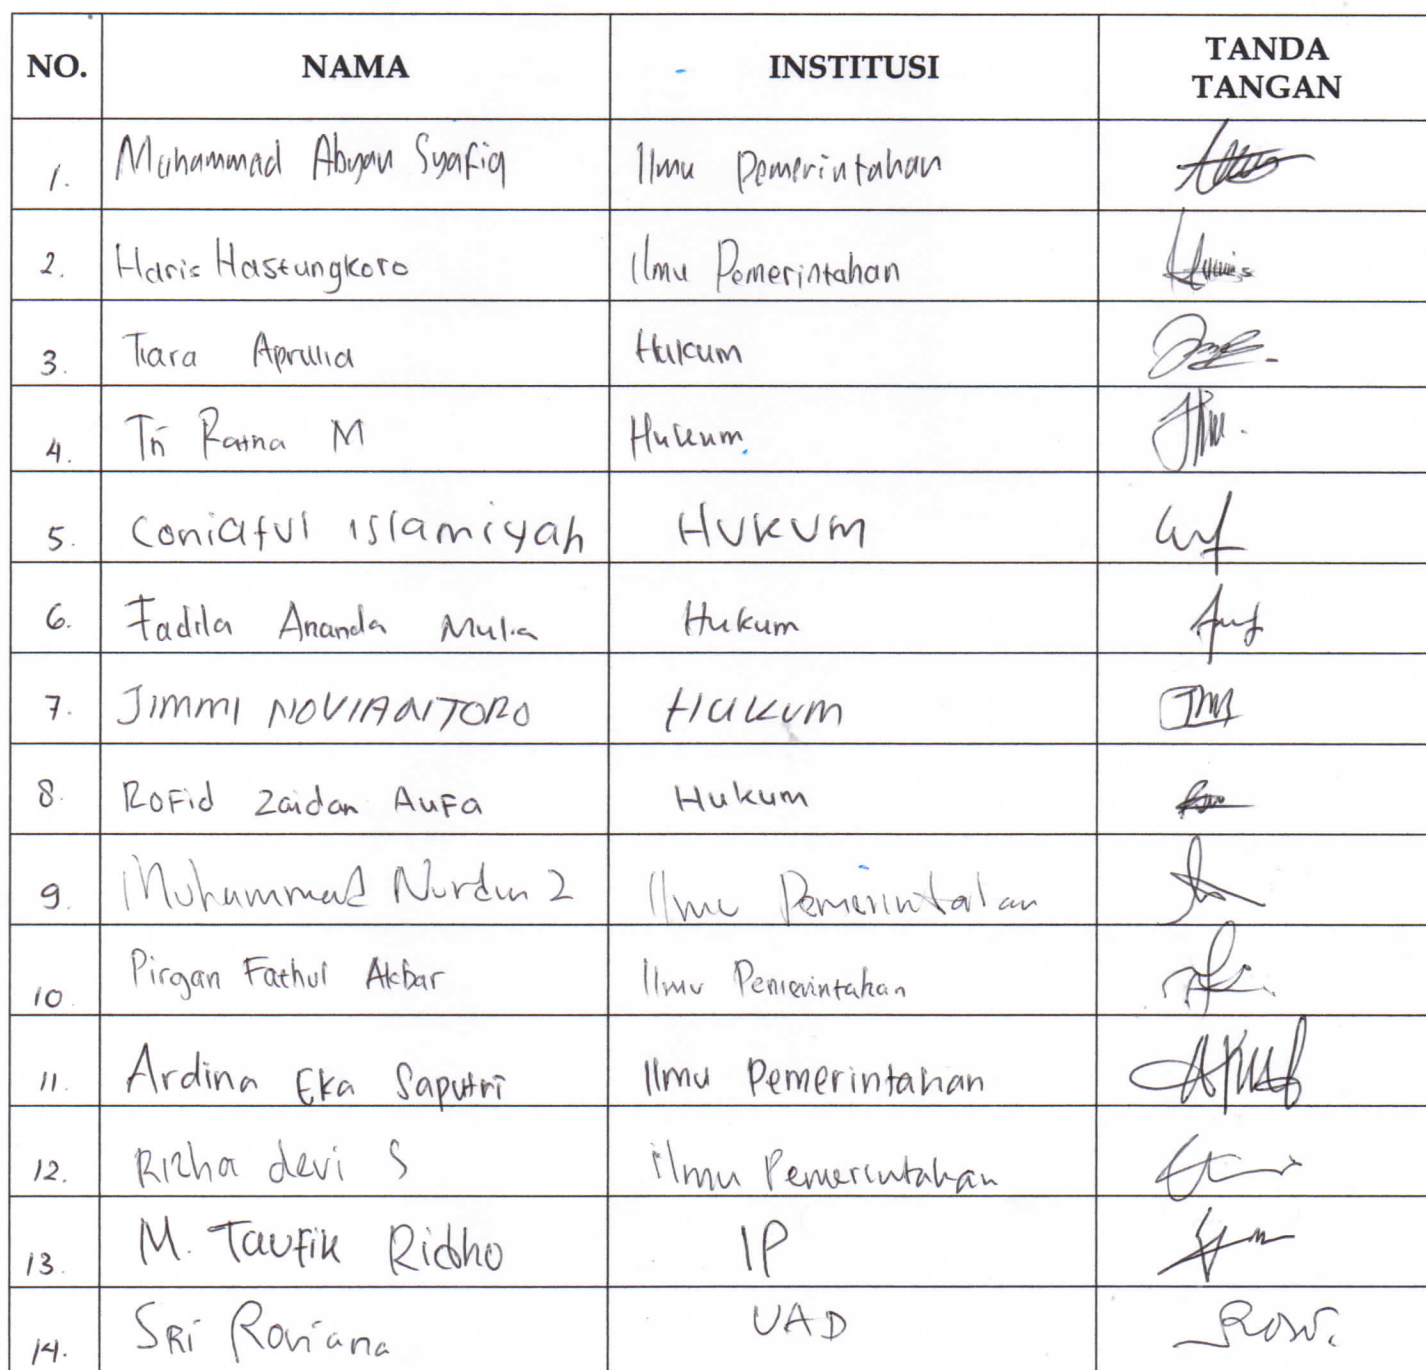 NO. NAMA INSTITUSI TANDA TANGAN
1. Muhammad Abyan Syafiq Ilmu Pemerintahan
2. Haris Hastungkoro Ilmu Pemerintahan
3. Tiara Aprilia Hukum
4. Tri Ratna M Hukum
5. Coniatul Islamiyah HUKUM
6. Fadila Ananda Mulia Hukum
7. JIMMI NOVIANTORO HUKUM
8. Rofid Zaidan Aufa Hukum
9. Muhammad Nurdin Z Ilmu Pemerintahan
10. Pirgan Fathul Akbar Ilmu Pemerintahan
11. Ardina Eka Saputri Ilmu Pemerintahan
12. Rizha devi S ilmu Pemerintahan
13. M. Taufik Ridho IP
14. SRi Roviana UAD